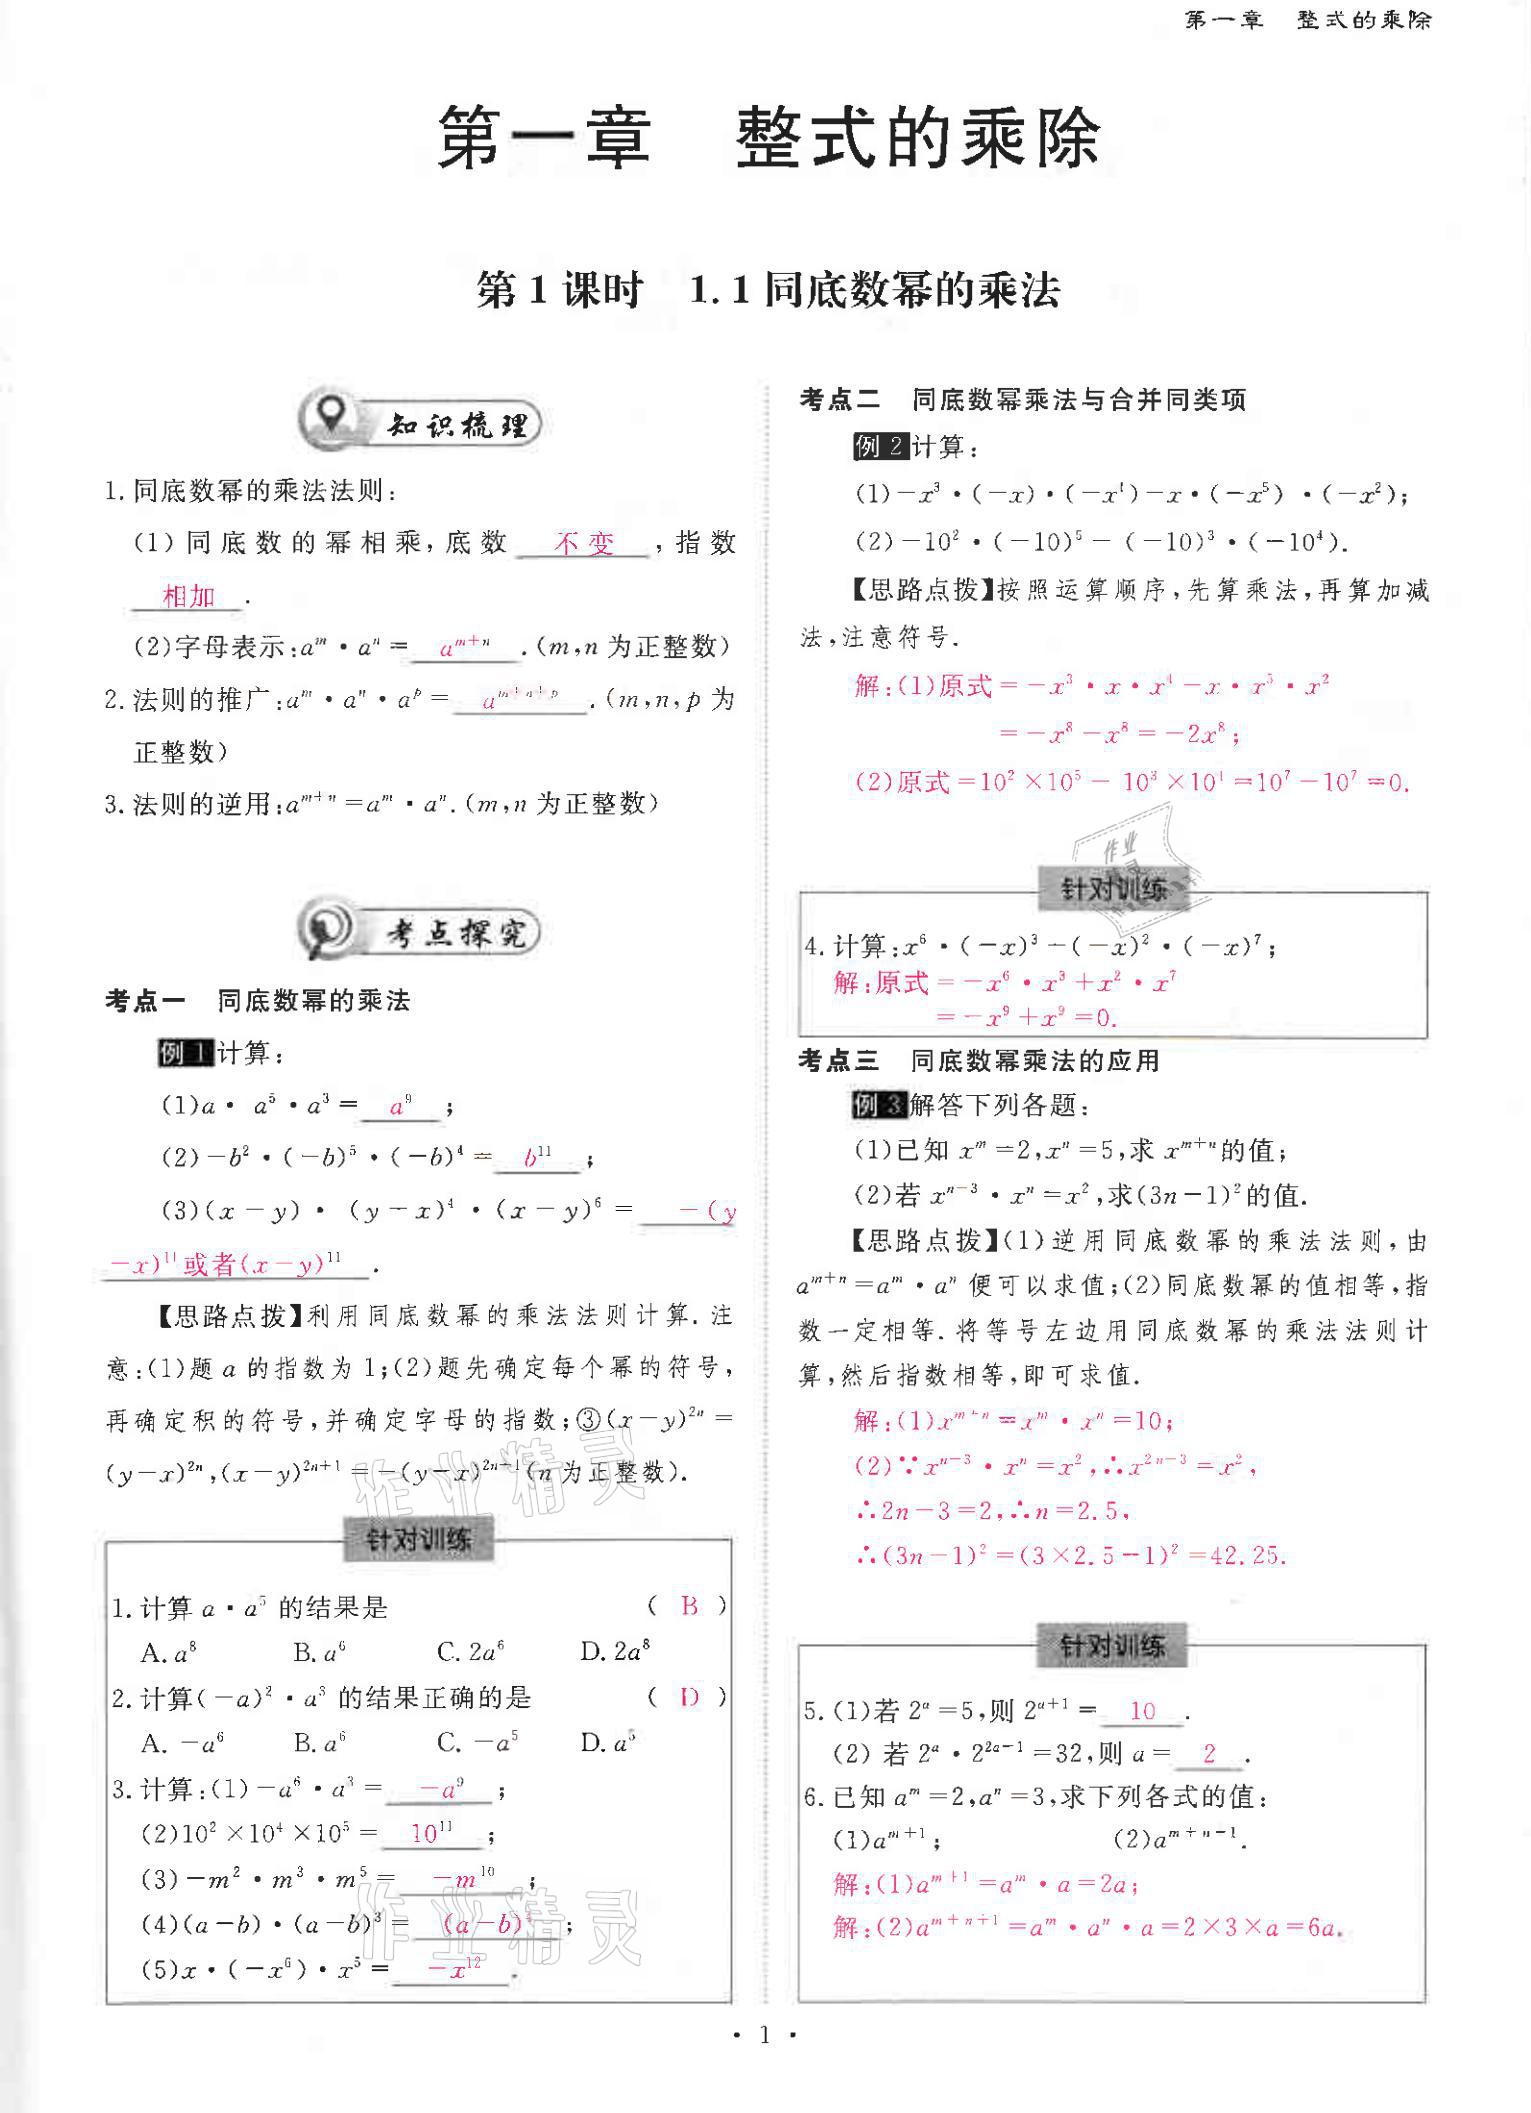 第一章 整式的乘除
第一章 整式的乘除
第1课时 1.1同底数幂的乘法
知识梳理
1.同底数幂的乘法法则:
(1)同底数的幂相乘,底数 不变 ,指数
相加 .
(2)字母表示:aᵐ·aⁿ= aᵐ⁺ⁿ .(m,n为正整数)
2.法则的推广:aᵐ·aⁿ·aᵖ= aᵐ⁺ⁿ⁺ᵖ .(m,n,p为
正整数)
3.法则的逆用:aᵐ⁺ⁿ=aᵐ·aⁿ.(m,n为正整数)
考点探究
考点一 同底数幂的乘法
例1计算:
(1)a·a⁵·a³= a⁹ ;
(2)-b²·(-b)⁵·(-b)⁴= b¹¹ ;
(3)(x-y)·(y-x)⁴·(x-y)⁶= -(y
-x)¹¹或者(x-y)¹¹ .
【思路点拨】利用同底数幂的乘法法则计算.注
意:(1)题a的指数为1;(2)题先确定每个幂的符号,
再确定积的符号,并确定字母的指数;③(x-y)²ⁿ=
(y-x)²ⁿ,(x-y)²ⁿ⁺¹=-(y-x)²ⁿ⁺¹(n为正整数).
针对训练
1.计算a·a⁵的结果是 ( B )
A.a⁸ B.a⁶ C.2a⁶ D.2a⁸
2.计算(-a)²·a³的结果正确的是 ( D )
A.-a⁶ B.a⁶ C.-a⁵ D.a⁵
3.计算:(1)-a⁶·a³= -a⁹ ;
(2)10²×10⁴×10⁵= 10¹¹ ;
(3)-m²·m³·m⁵= -m¹⁰ ;
(4)(a-b)·(a-b)³= (a-b)⁴ ;
(5)x·(-x⁶)·x⁵= -x¹² .
考点二 同底数幂乘法与合并同类项
例2计算:
(1)-x³·(-x)·(-x⁴)-x·(-x⁵)·(-x²);
(2)-10²·(-10)⁵-(-10)³·(-10⁴).
【思路点拨】按照运算顺序,先算乘法,再算加减
法,注意符号.
解:(1)原式=-x³·x·x⁴-x·x⁵·x²
=-x⁸-x⁸=-2x⁸;
(2)原式=10²×10⁵-10³×10⁴=10⁷-10⁷=0.
针对训练
4.计算:x⁶·(-x)³-(-x)²·(-x)⁷;
解:原式=-x⁶·x³+x²·x⁷
=-x⁹+x⁹=0.
考点三 同底数幂乘法的应用
例3解答下列各题:
(1)已知xᵐ=2,xⁿ=5,求xᵐ⁺ⁿ的值;
(2)若xⁿ⁻³·xⁿ=x²,求(3n-1)²的值.
【思路点拨】(1)逆用同底数幂的乘法法则,由
aᵐ⁺ⁿ=aᵐ·aⁿ便可以求值;(2)同底数幂的值相等,指
数一定相等.将等号左边用同底数幂的乘法法则计
算,然后指数相等,即可求值.
解:(1)xᵐ⁺ⁿ=xᵐ·xⁿ=10;
(2)∵xⁿ⁻³·xⁿ=x²,∴x²ⁿ⁻³=x²,
∴2n-3=2,∴n=2.5,
∴(3n-1)²=(3×2.5-1)²=42.25.
针对训练
5.(1)若2ᵃ=5,则2ᵃ⁺¹= 10 .
(2)若2ᵃ·2²ᵃ⁻¹=32,则a= 2 .
6.已知aᵐ=2,aⁿ=3,求下列各式的值:
(1)aᵐ⁺¹; (2)aᵐ⁺ⁿ⁺¹.
解:(1)aᵐ⁺¹=aᵐ·a=2a;
解:(2)aᵐ⁺ⁿ⁺¹=aᵐ·aⁿ·a=2×3×a=6a.
作业精灵
作业精灵
·1·